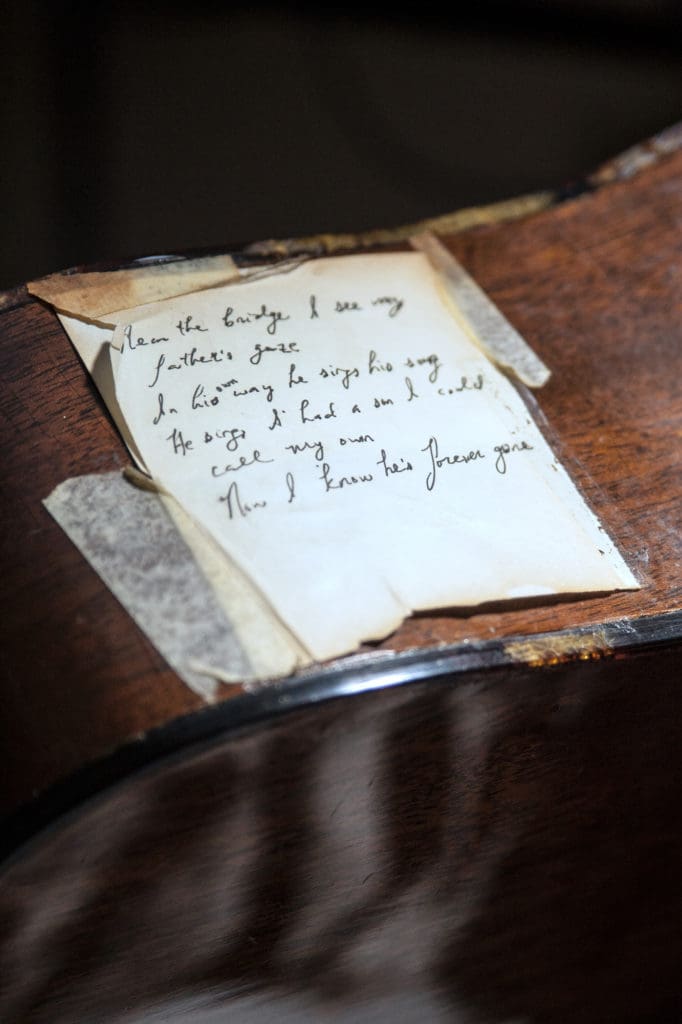 Near the bridge I see my
father's gaze
In his own way he sings his song
He sings I had a son I could
call my own
Now I know he's forever gone